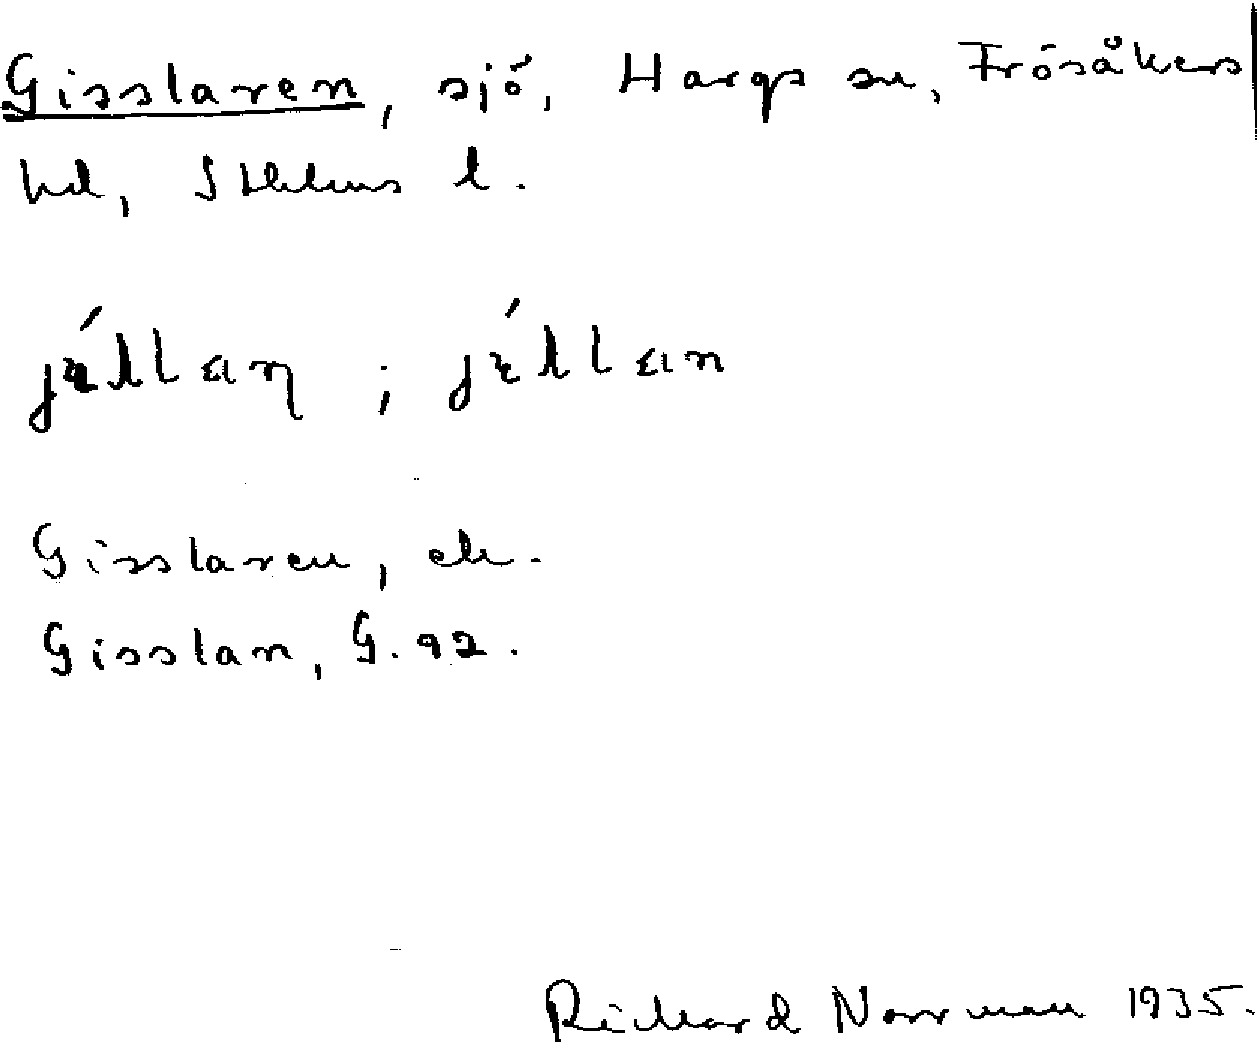 Gisslaren, sjö, Hargs sn, Frösåkers
hd, Sthlms l.
Gisslaren, ek.
Gisslan, G. 92.
Richard Norrman 1935.